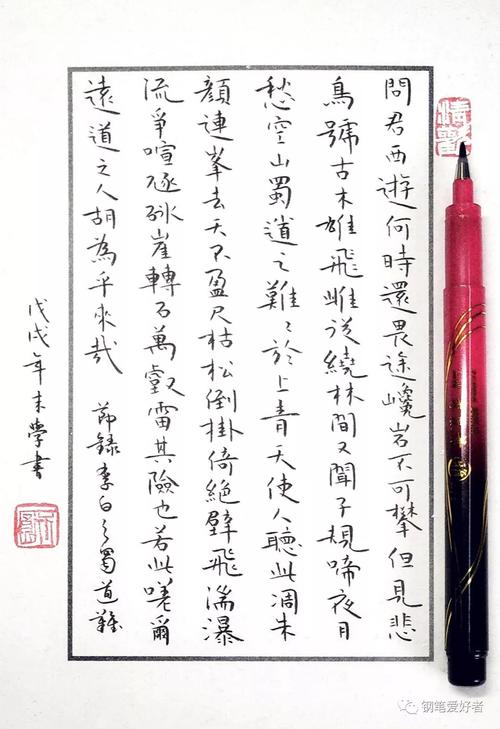 問君西遊何時還畏途巉岩不可攀但見悲
鳥號古木雄飛雌從繞林間又聞子規啼夜月
愁空山蜀道之難〻於上青天使人聽此凋朱
顏連峯去天不盈尺枯松倒掛倚絕壁飛湍瀑
流爭喧豗砯崖轉石萬壑雷其險也若此嗟爾
遠道之人胡為乎來哉 節錄李白之蜀道難
戊戌年末學書
钢笔爱好者